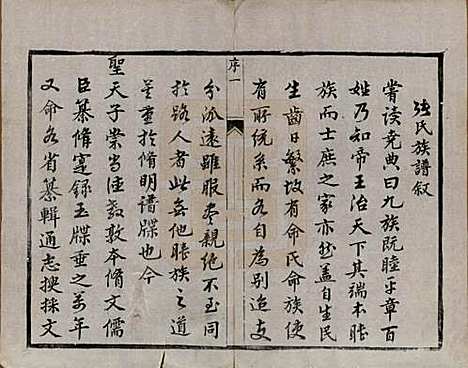 強氏族譜叙
嘗读尭典曰九族既睦平章百
姓乃知帝王治天下其端本睦
族而士庶之家亦然盖自生民
生齒日繁故有命氏命族使
有所统系而各自為别迨支
序一
分派遠雖服尽親绝不至同
於路人者此無他睦族之道
莫重於脩明谱牒也今
聖天子崇尚注教敦本脩文儒
臣纂脩寔録玉牒垂之万年
又命各省纂輯通志搜採文